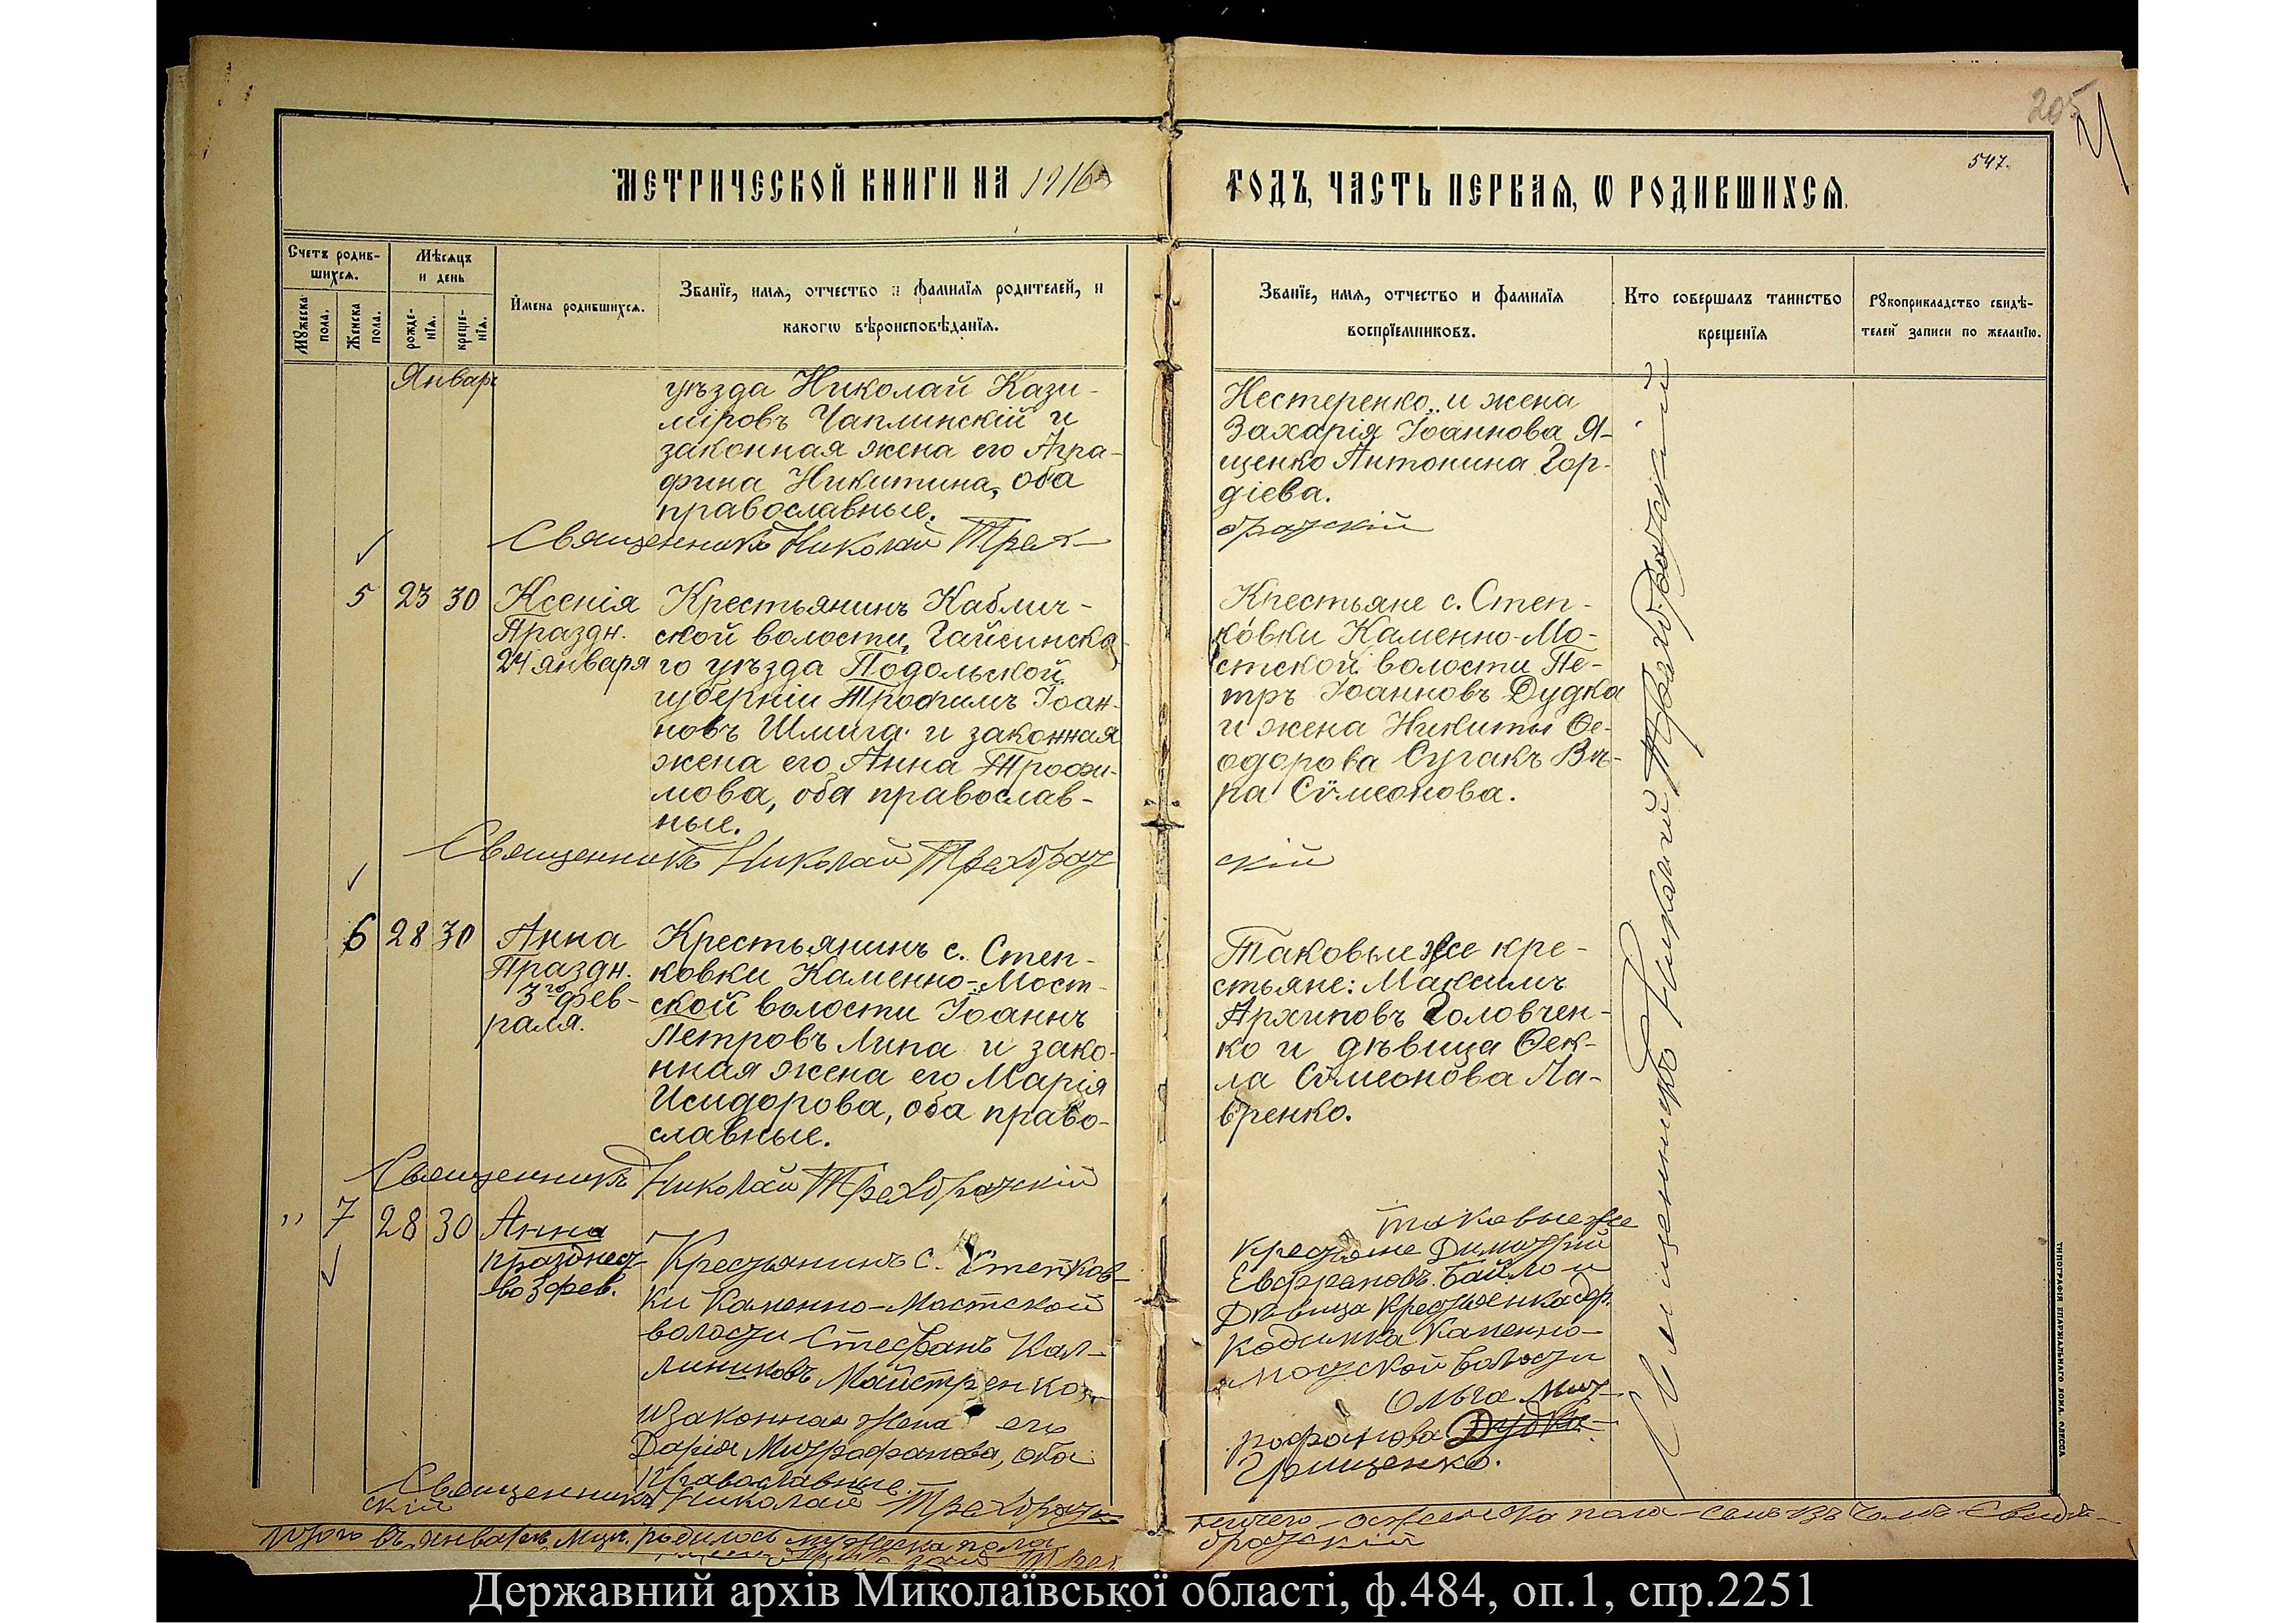 205
547.
МЕТРИЧЕСКОЙ КНИГИ НА 1916й
ГОДЪ, ЧАСТЬ ПЕРВАЯ, Ѡ РОДИВШИХСЯ.
Счетъ родив-
шихся.
Мужеска
пола.
Женска
пола.
Мѣсяцъ
и день
рожде-
нія.
креще-
нія.
Имена родившихся.
Званїе, имя, отчество и фамилїя родителей, и
какогѡ вѣроисповѣданїя.
Званїе, имя, отчество и фамилїя
воспрїемниковъ.
Кто совершалъ таинство
крещенїя
Рукоприкладство свидѣ-
телей записи по желанїю.
Январь
уѣзда Николай Кази-
міровъ Чаплинскій и
законная жена его Агра-
фина Никитина, оба
православные.
Священникъ Николай Трех-
Нестеренко и жена
Захарія Іоаннова Я-
щенко Антонина Гор-
діева.
бражскій
5 23 30 Ксенія
Праздн.
24 января
Крестьянинъ Каблич-
ской волости, Гайсинска-
го уѣзда Подольской
губерніи Трофимъ Іоан-
новъ Шмига и законная
жена его Анна Трофи-
мова, оба православ-
ные.
Священникъ Николай Трехбраж
Крестьяне с. Степ-
ковки Каменно-Мо-
стской волости Пе-
тръ Іоанновъ Дудка
и жена Никиты Ѳе-
одорова Сугакъ Вѣ-
ра Сѵмеонова.
скій
6 28 30 Анна
Праздн.
3го фев-
раля.
Крестьянинъ с. Степ-
ковки Каменно-Мост-
ской волости Іоаннъ
Петровъ Липа и зако-
нная жена его Марія
Исидорова, оба право-
славные.
Священникъ Николай Трехбражскій
Таковые же кре-
стьяне: Максимъ
Архиповъ Головчен-
ко и дѣвица Ѳек-
ла Сѵмеонова Ла-
вренко.
" 7 28 30 Анна
празднест-
во 3 фев.
Крестьянинъ с. Степков-
ки Каменно-Мостской
волости Стефанъ Кал-
линиковъ Майстренко
и законная жена его
Дарія Митрофанова, оба
православные.
Священникъ Николай Трехбраж-
скій
таковые же
крестьяне Димитрій
Евфрановъ Байло и
Дѣвица крестьянка др.
Кодимка Каменно-
мостской волости
Ольга Мит-
рофанова Дудка
Грищенко.
Священникъ Николай Трехбражскій
Итого въ январѣ мцѣ родилось мужеска пола
ничего - а женска пола - семь въ чемъ и свидѣ-
бражскій
ТИПОГРАФІЯ ЕПАРХІАЛЬНАГО ДОМА, ОДЕССА
Державний архів Миколаївської області, ф.484, оп.1, спр.2251